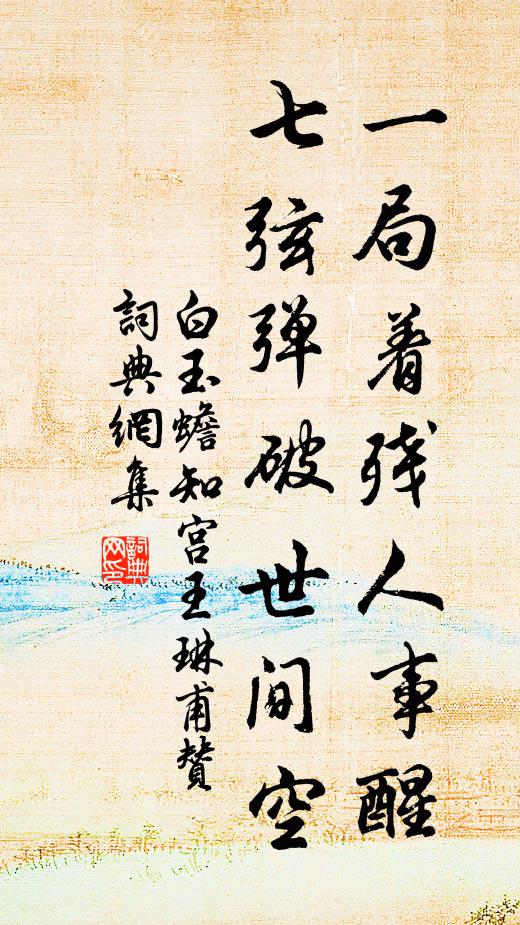 一局着残人事醒
七弦弹破世间空
白玉蟾知宫王琳甫赞
詞典網集
詞典
网印